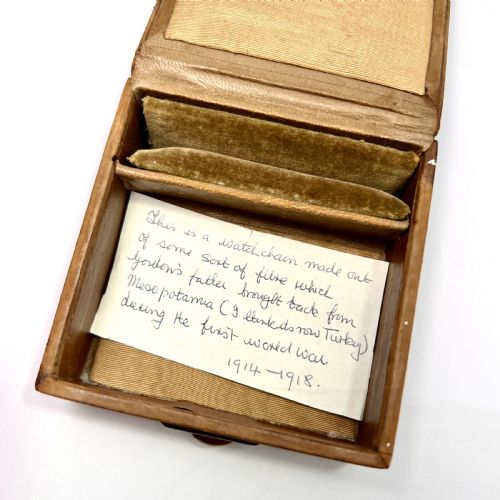 This is a watch chain made out
of some sort of fibre which
Gordon's father brought back from
Mesopotamia (I think its now Turkey)
during the first world war
1914-1918.